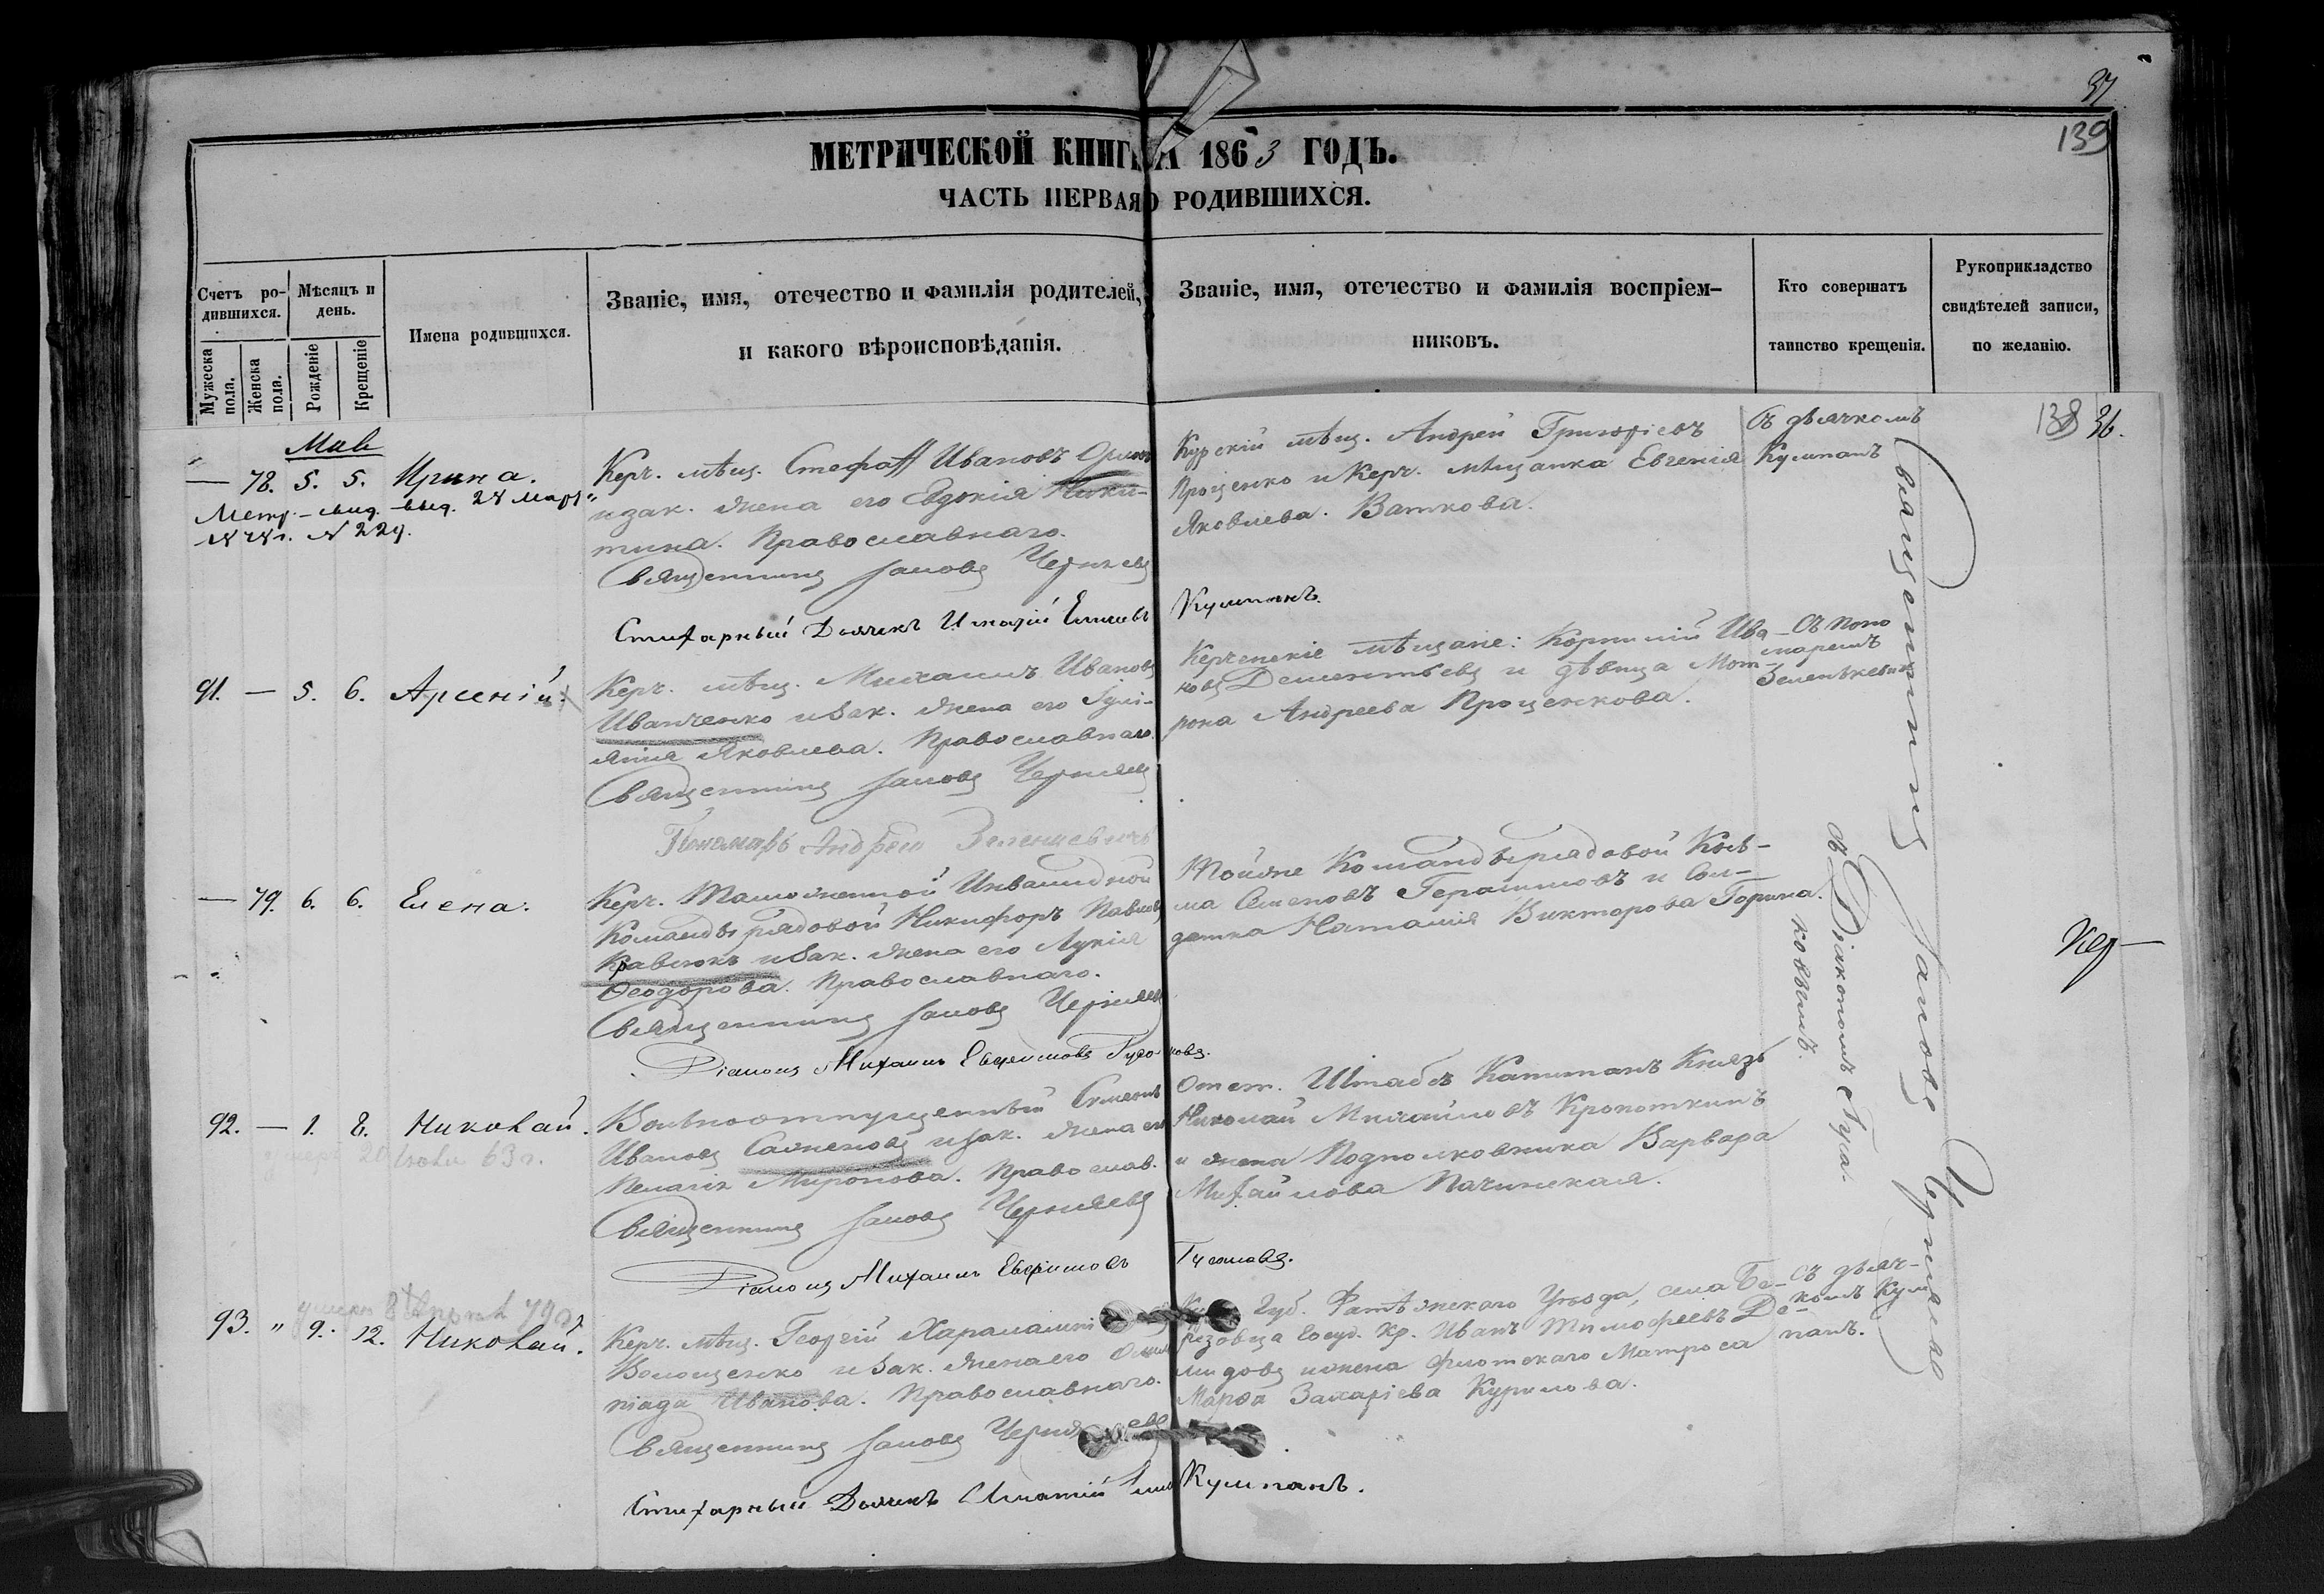 37
139
МЕТРИЧЕСКОЙ КНИГИ НА 1863 ГОДЪ.
ЧАСТЬ ПЕРВАЯ О РОДИВШИХСЯ.
Счетъ ро-
дившихся.
Мужеска
пола.
Женска
пола.
Мѣсяцъ и
день.
Рожденіе
Крещеніе
Имена родившихся.
Званіе, имя, отечество и фамилія родителей,
и какого вѣроисповѣданія.
Званіе, имя, отечество и фамилія воспріем-
никовъ.
Кто совершатъ
таинство крещенія.
Рукоприкладство
свидѣтелей записи,
по желанію.
138 36.
— 78. 5. 5. Ирина.
Метр. свид. выд. 24 Март
№ 229.
Керч. мѣщ. Стефанъ Ивановъ
и зак. жена его Евдокія Ники-
тина. Православнаго.
Священникъ Іаковъ Черняевъ
Стихарный Дьячекъ Игнатій
Курскій мѣщ. Андрей Григорьевъ
Проценко и Керч. мѣщанка Евгенія
Яковлева. Ваткова.
Кулпанъ.
Съ дьячкомъ
Кулпанъ
91. — 5. 6. Арсеній.
Керч. мѣщ. Михаилъ Ивановъ
Иванченко и зак. жена его Іулі-
анія Яковлева. Православнаго.
Священникъ Іаковъ Черняевъ
Пономарь Андрей Зеленкевичъ
Керченскіе мѣщане: Корнилій Ива-
новъ Дементьевъ и дѣвица Мат-
рона Андреева Проценкова.
Съ поно
маремъ
Зеленкевич
— 79. 6. 6. Елена.
Керч. Таможенной Инвалидной
Команды рядовой Никифоръ Павловъ
Кравцокъ и зак. жена его Лукія
Ѳеодорова. Православнаго.
Священникъ Іаковъ Черняевъ
Діаконъ Михаилъ Евфимовъ Гусаковъ.
Тойже Команды рядовой Козь-
ма Семеновъ Герасимовъ и Сол-
датка Наталія Викторова Горина.
Съ Діакономъ Гуса-
ковымъ.
92. — 1. 8. Николай.
Іюля 63 г.
Вольноотпущенный Симеонъ
Ивановъ Саженовъ и зак. жена его
Пелагія Миронова. Православ.
Священникъ Іаковъ Черняевъ
Діаконъ Михаилъ Евфимовъ
Отст. Штабсъ Капитанъ Князь
Николай Михайловъ Кропоткинъ
и жена Подполковника Варвара
Михайлова Пачинская.
Гусаковъ.
93. " 9. 12. Николай.
Керч. мѣщ. Георгій
Волощенко и зак. жена его
піада Иванова. Православнаго.
Священникъ Іаковъ Черняевъ
Стихарный Дьячекъ Игнатій
Губ. Фатѣжскаго Уѣзда, села Бе-
резовца Госуд. Кр. Иванъ Тимофеевъ Де-
мидовъ и жена флотскаго Матроса
Марѳа Захаріева Курилова.
Кулпанъ.
Съ дьяч-
комъ Кул
панъ.
Священникъ Іаковъ Черняевъ